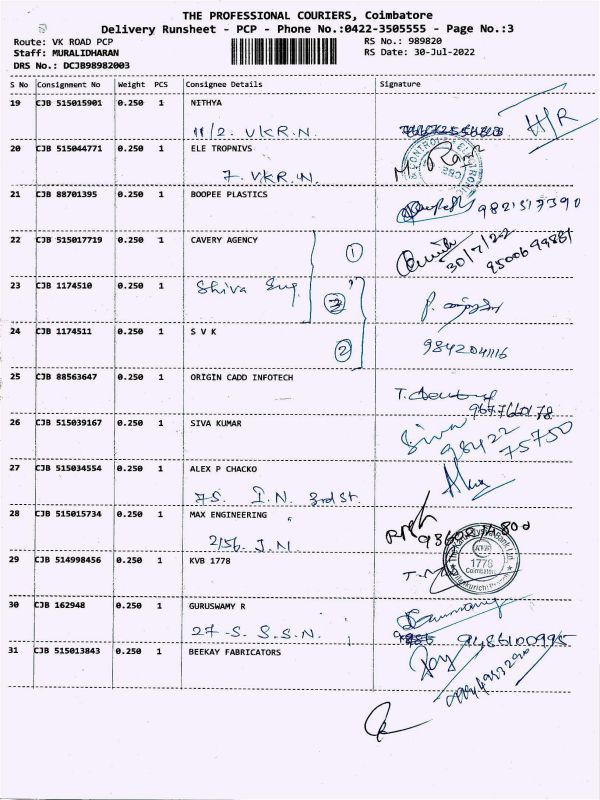 THE PROFESSIONAL COURIERS, Coimbatore
Delivery Runsheet - PCP - Phone No.:0422-3505555 - Page No.:3
Route: VK ROAD PCP
Staff: MURALIDHARAN
DRS No.: DCJB98982003
RS No.: 989820
RS Date: 30-Jul-2022
S No Consignment No Weight PCS Consignee Details Signature
19 CJB 515015901 0.250 1 NITHYA
11/2. V.K.R.N.
20 CJB 515044771 0.250 1 ELE TROPNIVS
7. V.K.R.N.
21 CJB 88701395 0.250 1 BOOPEE PLASTICS
9821513390
22 CJB 515017719 0.250 1 CAVERY AGENCY
1
30/7/22
9500699881
23 CJB 1174510 0.250 1 Shiva Eng.
3
24 CJB 1174511 0.250 1 S V K
2
9842041116
25 CJB 88563647 0.250 1 ORIGIN CADD INFOTECH
26 CJB 515039167 0.250 1 SIVA KUMAR
Siva
98422
75750
27 CJB 515034554 0.250 1 ALEX P CHACKO
Alex
75. I.N. 3rd St.
28 CJB 515015734 0.250 1 MAX ENGINEERING
2/56. I.N
29 CJB 514998456 0.250 1 KVB 1778
1778
Coimbatore
30 CJB 162948 0.250 1 GURUSWAMY R
27-S. S.S.N.
9486100995
31 CJB 515013843 0.250 1 BEEKAY FABRICATORS